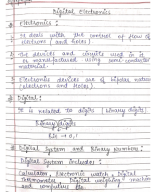 Digital Electronics
Electronics :
It deals with the control of flow of
electrons (and holes)
The devices and circuits used in it
is manufactured using semi-conductor
material.
Electronics devices are of bipolar nature
(electrons and holes)
Digital :
It is related to digits (binary digits)
Binary digits
0, 1
Digital System and Binary numbers :
Digital System includes :
Calculator, Electronic watch, Digital
Thermometer, Digital weighing machine
and computers etc